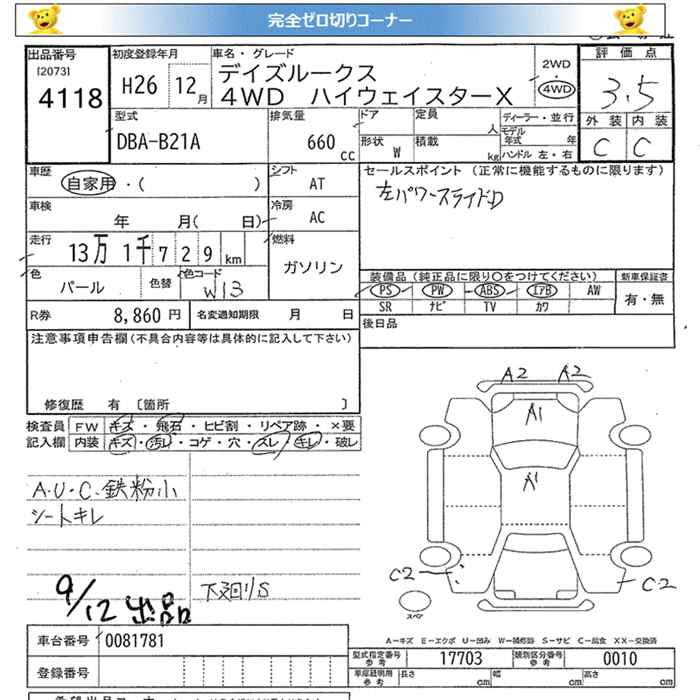 完全ゼロ切りコーナー
出品番号
[2073]
4118
初度登録年月
H26 12 月
車名・グレード
デイズルークス
4WD ハイウェイスターX
2WD
4WD
評価点
3.5
外装 内装
C C
型式
DBA-B21A
排気量
660 cc
ドア
定員
人
形状
W
積載
kg
ディーラー・並行
モデル年式 年
ハンドル 左・右
車歴
自家用・( )
シフト
AT
セールスポイント (正常に機能するものに限ります)
左パワースライドD
車検
年 月( 日)
冷房
AC
走行
13万 1千 7 2 9 km
燃料
ガソリン
色
パール
色替
色コード
W13
装備品 (純正品に限り○をつけてください)
PS PW ABS エアB AW
SR ナビ TV カワ
新車保証書
有・無
R券 8,860 円
名変通知期限 月 日
後日品
注意事項申告欄(不具合内容等は具体的に記入して下さい)
修復歴 有 〔箇所 〕
検査員記入欄
FW キズ・飛石・ヒビ割・リペア跡・×要
内装 キズ・汚レ・コゲ・穴・スレ・キレ・破レ
A.U.C.鉄粉小
シートキレ
9/12 出品
下廻りS
A2 A2
A1
A1
C2
C2
スペア
A-キズ E-エクボ U-凹み W-補修跡 S-サビ C-腐食 XX-交換済
車台番号 0081781
登録番号
型式指定番号 参考 17703
類別区分番号 参考 0010
車庫証明用 参考
長さ cm
幅 cm
高さ cm